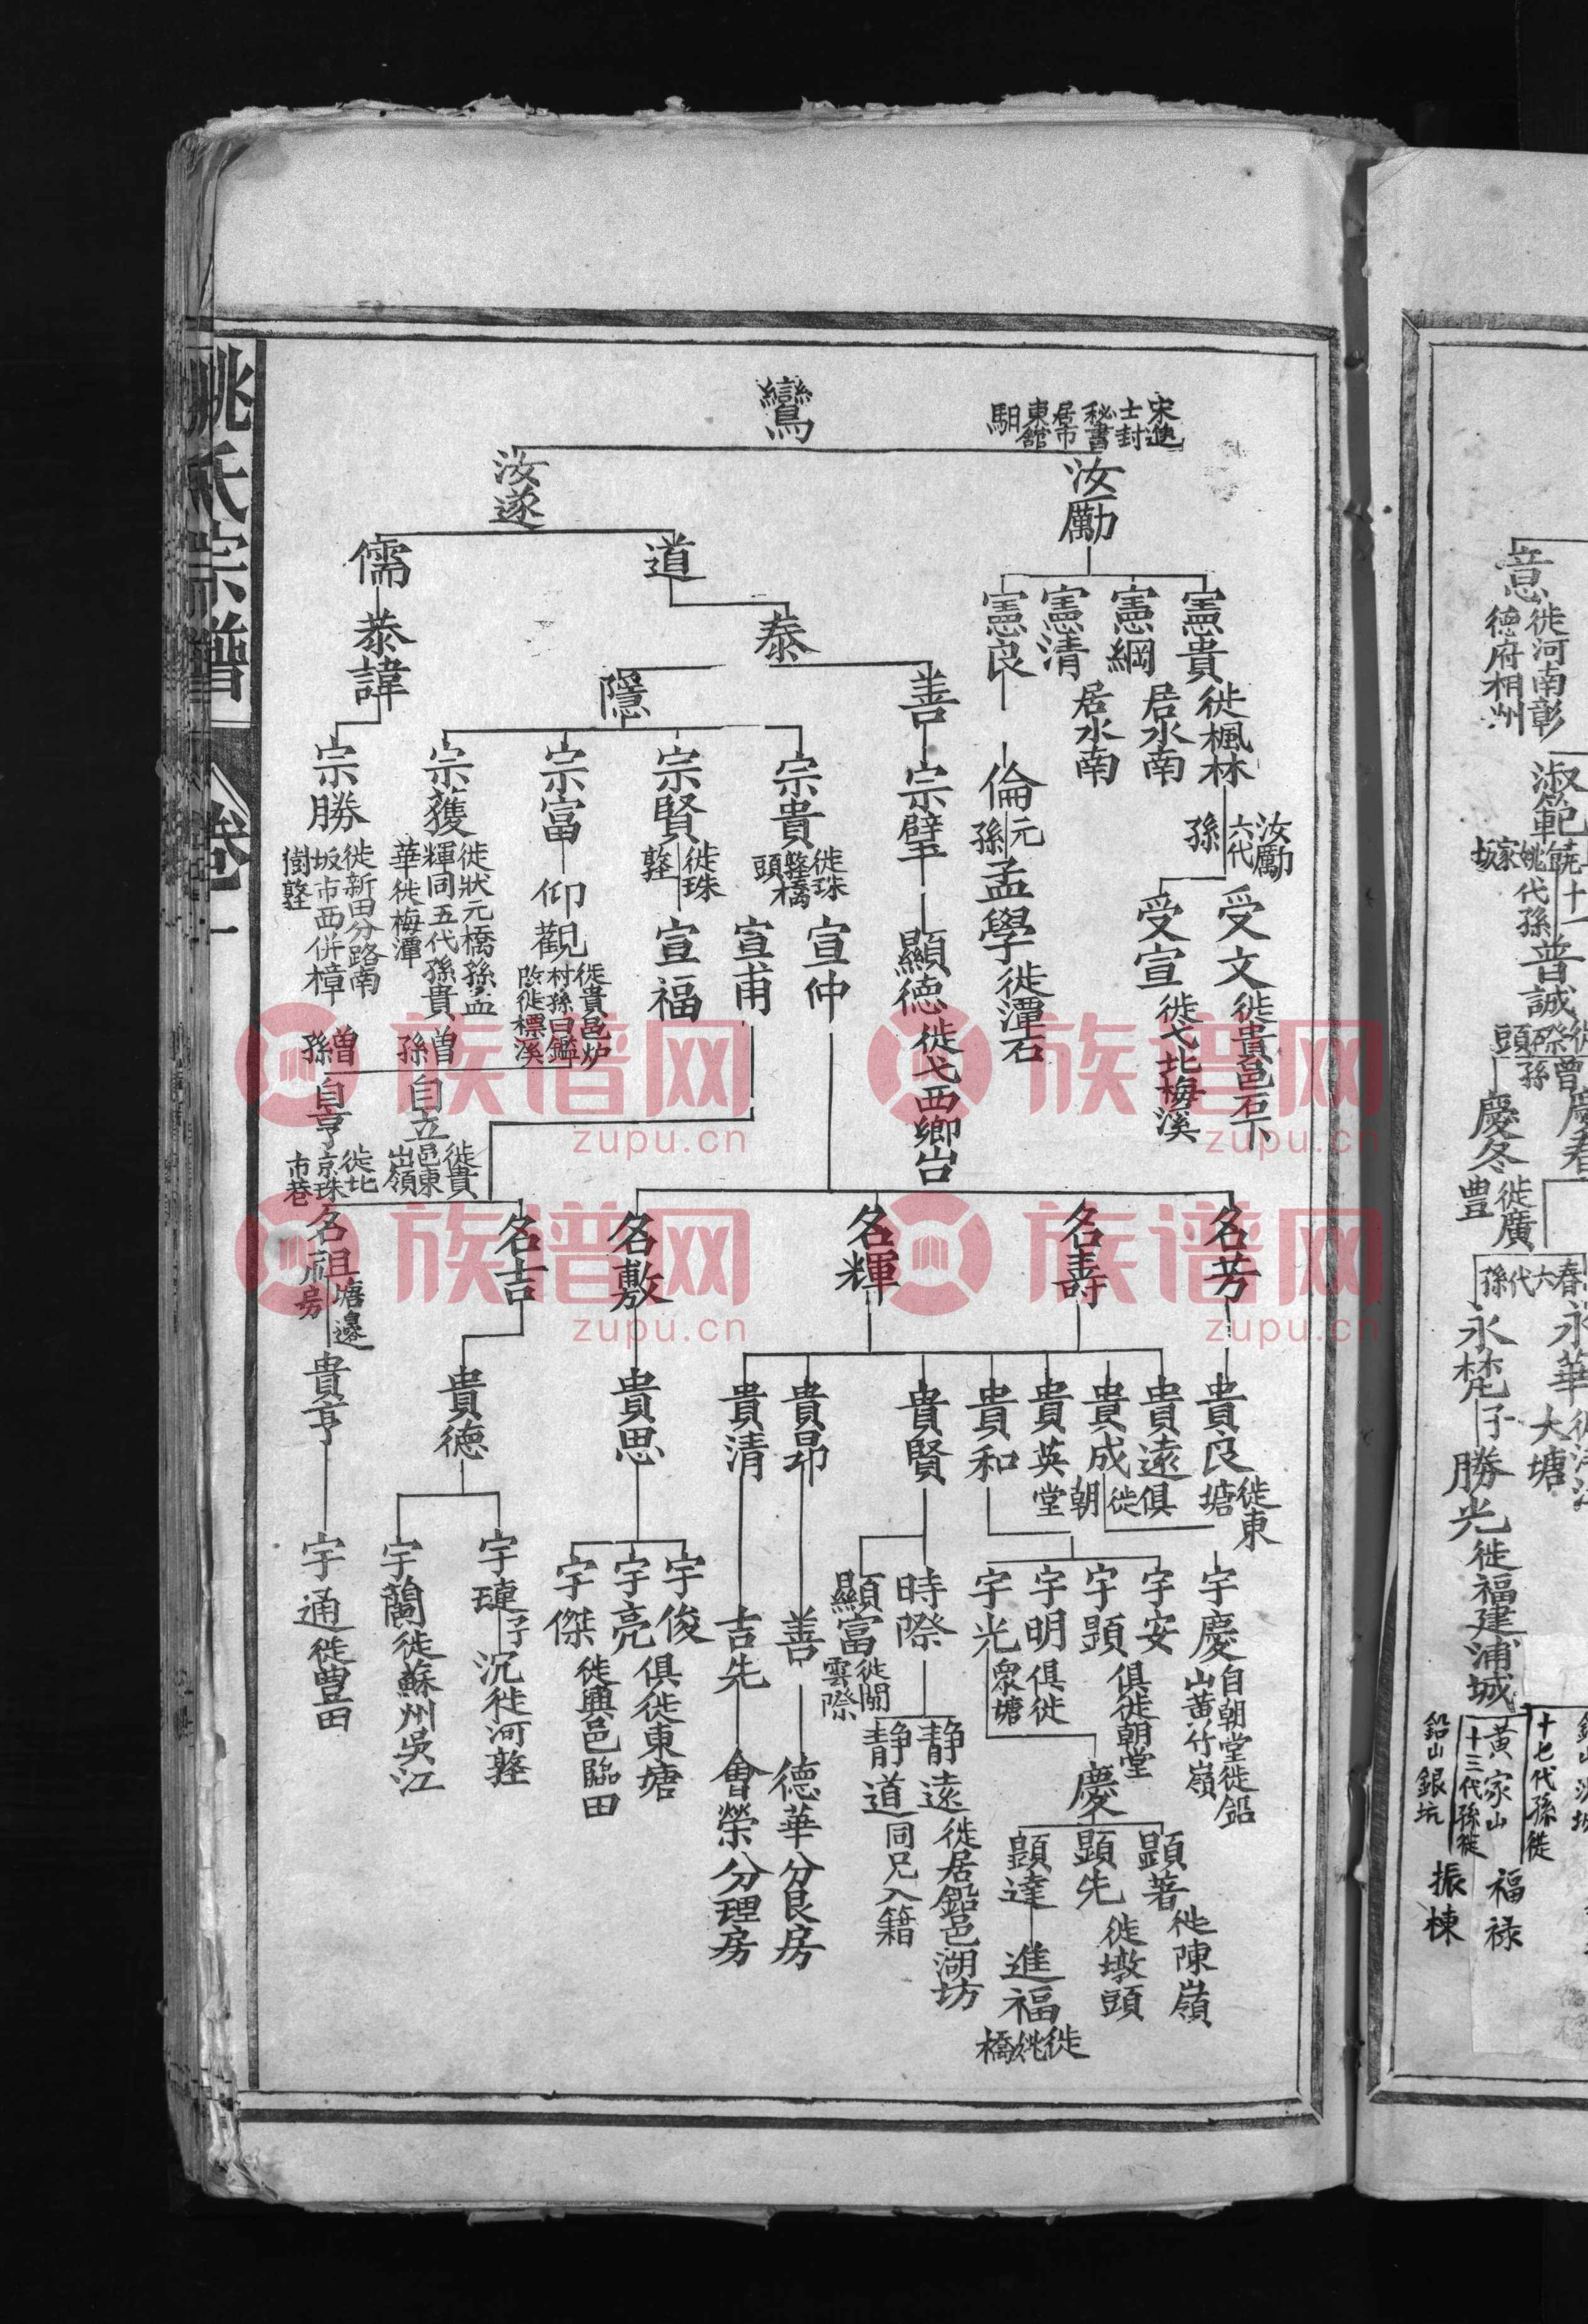 姚氏宗譜
卷一
鸞
宋進
士封
秘書
居市
東館
馹
汝勵
汝遂
道
儒
憲貴
徙楓林
憲綱
居水南
憲清
居水南
憲良
泰
恭諱
善
隱
汝勵
六代
孫
受文
徙貴邑石下
受宣
徙弋北梅溪
倫
元
孫
孟學
徙潭石
宗璧
顯德
徙弋西鄉台
宗貴
徙珠
墪橋
頭
宗賢
徙珠
墪
宗富
宗護
徙狀元橋孫孟
輝同五代孫貴
華徙梅潭
宗勝
徙新田分路南
坂市西併樟
樹墪
宣仲
宣甫
宣福
仰觀
徙貴邑炉
村孫曰鑑
改徙標溪
曾
孫
自立
徙貴
邑東
出嶺
曾
孫
自亨
徙北
京珠
市巷
名芳
名壽
名輝
名敷
名吉
名祖
塘邊
房
貴良
徙東
塘
貴遠
俱
貴成
徙
朝
貴英
堂
貴和
貴賢
貴昂
貴清
貴思
貴德
貴亨
宇慶
自朝堂徙鉛
山黃竹嶺
宇安
宇顕
俱徙朝堂
宇明
俱徙
宇光
眾塘
時際
顯富
徙閣
雲際
善
吉先
宇俊
宇亮
俱徙東塘
宇傑
徙興邑臨田
宇璉
子
沉
徙河墪
宇蘭
徙蘇州吳江
宇通
徙豊田
慶
靜遠
徙居鉛邑湖坊
靜道
同兄入籍
德華
分良房
會榮
分理房
顕著
徙陳嶺
顕先
徙墩頭
顕達
進福
徙姚橋
意
徙河南彰
德府相州
淑範
姚家坂
十一
代孫
普誠
曾
孫
頭
慶冬
徙廣
豊
春六代孫
永華
大塘
永梵
子
勝光
徙福建浦城
十七代孫徙
黃家山
十三代孫徙
鉛山銀坑
福禄
振棟
族谱网
zupu.cn
族谱网
zupu.cn
族谱网
zupu.cn
族谱网
zupu.cn